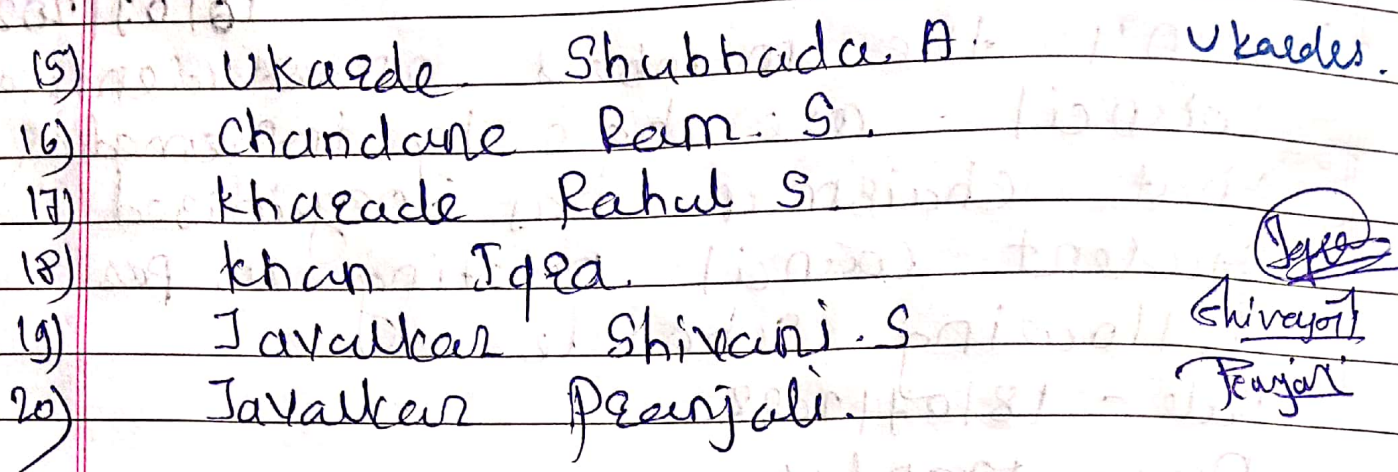 15) Ukarde Shubhada. A. Ukardes.
16) Chandane Ram. S.
17) Kharade Rahul S
18) Khan Iqra.
19) Javalkar Shivani. S
20) Javalkar Pranjali.